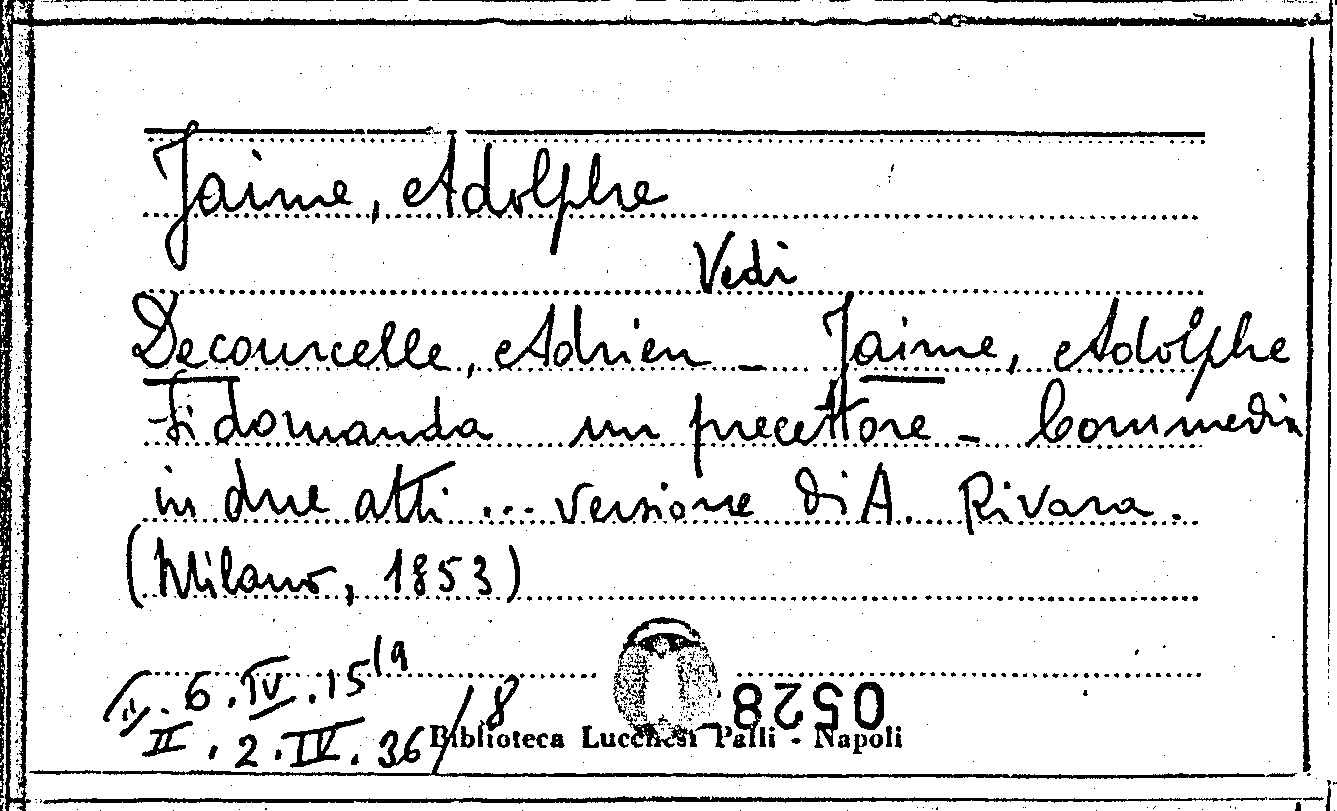 Jaime, Adolphe
Vedi
Decourcelle, Adrien - Jaime, Adolphe
Si domanda un precettore - Commedia
in due atti ... versione di A. Rivara.
(Milano, 1853)
II. 6. IV. 15(9
II. 2. IV. 36/8
0528
Biblioteca Lucchesi Palli - Napoli